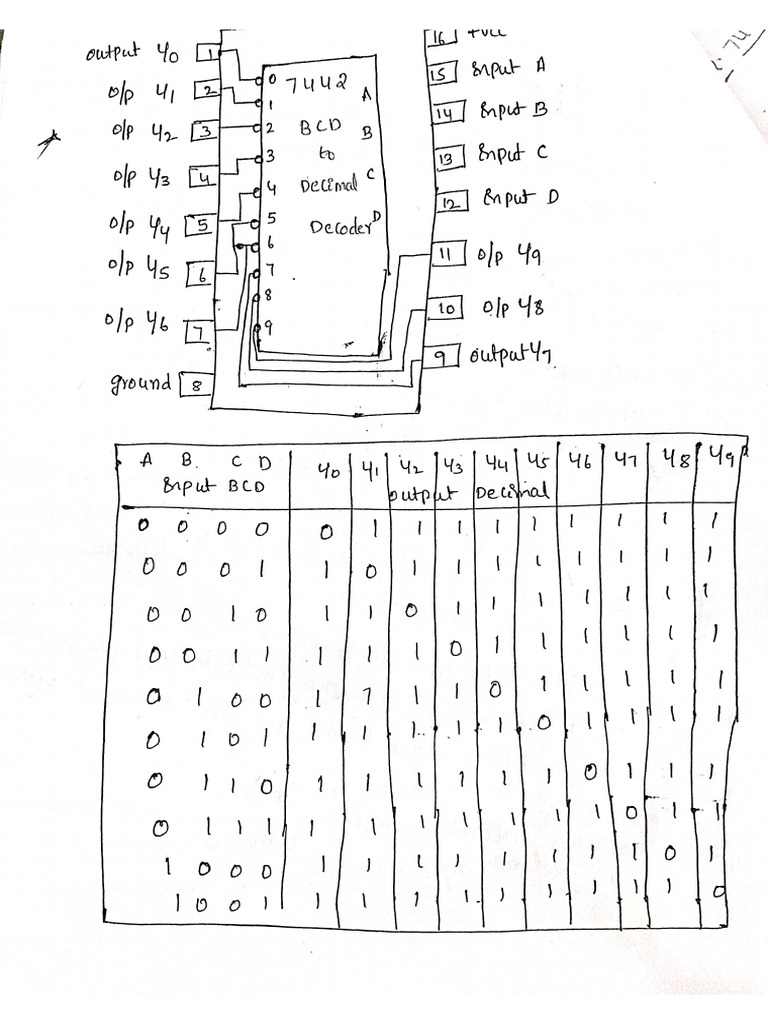 16 +Vcc
output Y0 1
0 7442
15 Input A
o/p Y1 2
1 A
14 Input B
o/p Y2 3
2 BCD B
13 Input C
o/p Y3 4
3 to
4 Decimal C
12 Input D
o/p Y4 5
5 Decoder D
6
11 o/p Y9
o/p Y5 6
7
8
10 o/p Y8
o/p Y6 7
9
9 output Y7
ground 8
A B. C D Y0 Y1 Y2 Y3 Y4 Y5 Y6 Y7 Y8 Y9
Input BCD output Decimal
0 0 0 0 0 1 1 1 1 1 1 1 1 1
0 0 0 1 1 0 1 1 1 1 1 1 1 1
0 0 1 0 1 1 0 1 1 1 1 1 1 1
0 0 1 1 1 1 1 0 1 1 1 1 1 1
0 1 0 0 1 1 1 1 0 1 1 1 1 1
0 1 0 1 1 1 1 1 1 0 1 1 1 1
0 1 1 0 1 1 1 1 1 1 0 1 1 1
0 1 1 1 1 1 1 1 1 1 1 0 1 1
1 0 0 0 1 1 1 1 1 1 1 1 0 1
1 0 0 1 1 1 1 1 1 1 1 1 1 0